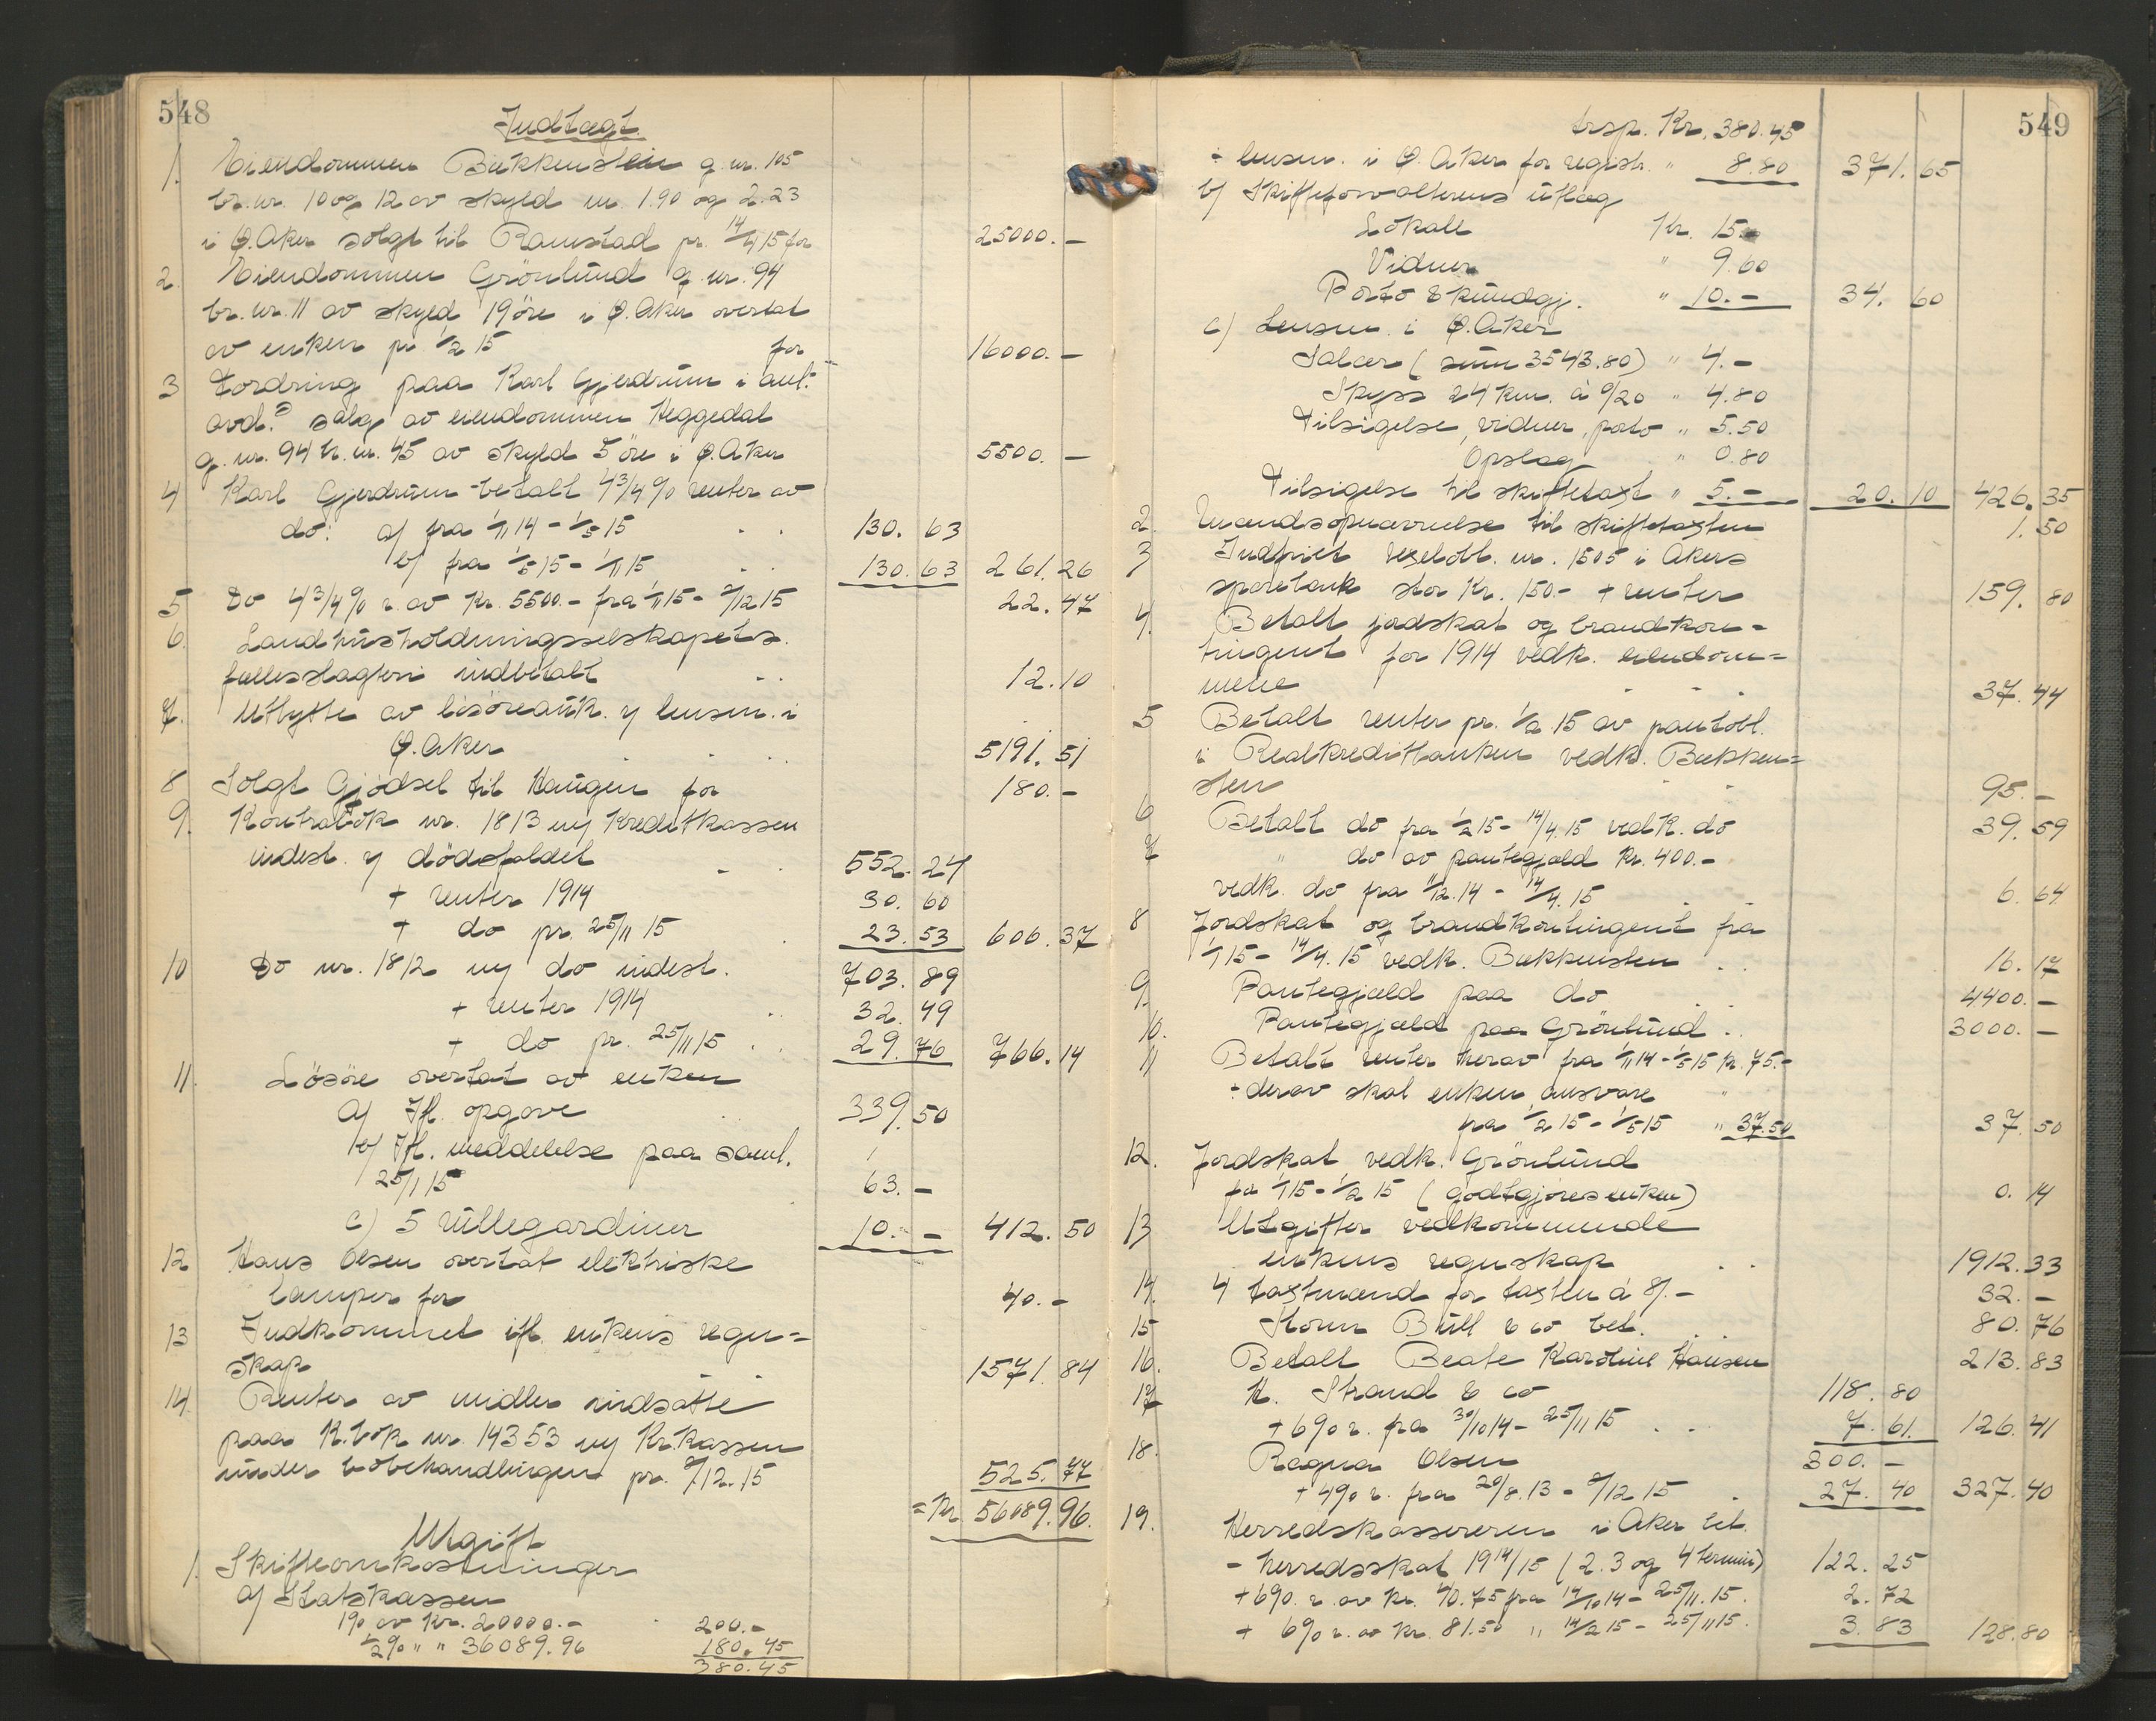 548
Indtægt
1. Eiendommen Bækkensten g.nr. 105
br.nr. 10 og 12 av skyld m. 1.90 og 2.23
i Ø.Aker solgt til Ramstad pr. 14/4 15 for 25000.–
2. Eiendommen Grönlund g.nr. 94
br.nr. 11 av skyld 19 öre i Ø.Aker overtat
av enken pr 1/2 15 for 16000.–
3 Fordring paa Karl Gjerdrum i anl.
avd.s salg av eiendommen Heggedal
g.nr. 94 b.nr. 45 av skyld 5 öre i Ø.Aker 5500.–
4 Karl Gjerdrum betalt 4 3/4 % renter av
do: a) fra 1/11 14 – 1/5 15 130.63
b) fra 1/5 15 – 1/11 15 130.63 261.26
5 Do 4 3/4 % r. av Kr. 5500.– fra 1/11 15 – 2/12 15 22.47
6. Landhusholdningsselskapets
fællesslagteri indbetalt 12.10
7. Utbytte av lösöreauk. v/ lensm. i
Ø.Aker 5191.51
8 Solgt Gjödsel til Haugen for 180.–
9. Kontrabok nr. 1813 v/ Kreditkassen
indest. v/ dödsfaldet 552.24
+ renter 1914 30.60
+ do pr. 25/11 15 23.53 606.37
10 Do nr. 1812 v/ do indest. 703.89
+ renter 1914 32.49
+ do pr. 25/11 15 29.76 766.14
11. Lösöre overtat av enken
a) Ifl. opgave 339.50
b) Ifl. meddelelse paa saml.
25/1 15 63.–
c) 5 rullegardiner 10.– 412.50
12 Hans Olsen overtat elektriske
lamper for 40.–
13 Indkommet ifl. enkens regn=
skap 1571.84
14. Renter av midler indsatte
paa K.bok nr. 14353 v/ Kr.kassen
under bobehandlingen pr. 2/12.15 525.77
= Kr 56089.96.
Utgift
1. Skifteomkostninger
a) Statskassen
1% av Kr. 20000.– 200.–
1/2 % " " 36089.96 180.45
380.45
549
trsp. Kr. 380.45
÷ lensm. i Ø.Aker for registr. " 8.80 371.65
b) Skifteforvalterens utlæg
Lokale Kr. 15.–
Vidner " 9.60
Porto & kundgj. " 10.– 34.60
c) Lensm. i Ø.Aker
Salær (sum 3543.80) " 4.–
Skyss 24 km. à 0/20 " 4.80
Tilsigelse, vidner, porto " 5.50
Opslag " 0.80
Tilsigelse til skiftetaxt " 5.– 20.10 426.35
2. Mændsopnævnelse til skiftetaxten 1.50
3 Indfriet vexelobl. nr. 1505 i Akers
sparebank stor Kr. 150.– + renter 159.80
4. Betalt jordskat og brandkon=
tingent for 1914 vedk. eiendom=
mene 37.44
5 Betalt renter pr. 1/2 15 av pantobl.
i Realkreditbanken vedk. Bækken=
sten 95.–
6 Betalt do fra 1/2 15 – 14/4.15 vedk. do 39.59
7 " do av pantegjæld Kr. 400.–
vedk. do fra 11/12.14 – 14/4.15 6.64
8 Jordskat og brandkontingent fra
1/1 15 – 14/4.15 vedk. Bækkensten 16.17
9. Pantegjæld paa do 4400.–
10. Pantegjæld paa Grönlund 3000.–
11 Betalt renter herav fra 1/11 14 – 1/5 15 Kr. 75.–
÷ derav skal enken ansvare
fra 1/2 15 – 1/5 15 " 37.50 37.50
12. Jordskat vedk. Grönlund
fra 1/1 15 – 1/2 15 (godtgjöres enken) 0.14
13 Utgifter vedkommende
enkens regnskap 1912.33
14. 4 taxtmænd for taxten à 8/.– 32.–
15 Storm Bull & co bet. 80.76
16. Betalt Beate Karoline Hansen 213.83
17 H. Strand & co 118.80
+ 6% r. fra 30/10 14 – 25/11 15 7.61. 126.41
18. Ragna Olsen 300.–
+ 4% r. fra 20/8.13 – 2/12 15 27.40 327.40
19. Herredskassereren i Aker bet.
– herredsskat 1914/15 (2. 3 og 4 termin) 122.25
+ 6% r. av Kr. 40.75 fra 14/10 14 – 25/11.15. 2.72
+ 6% r. av Kr. 81.50 " 14/2 15 – 25/11 15. 3.83 128.80